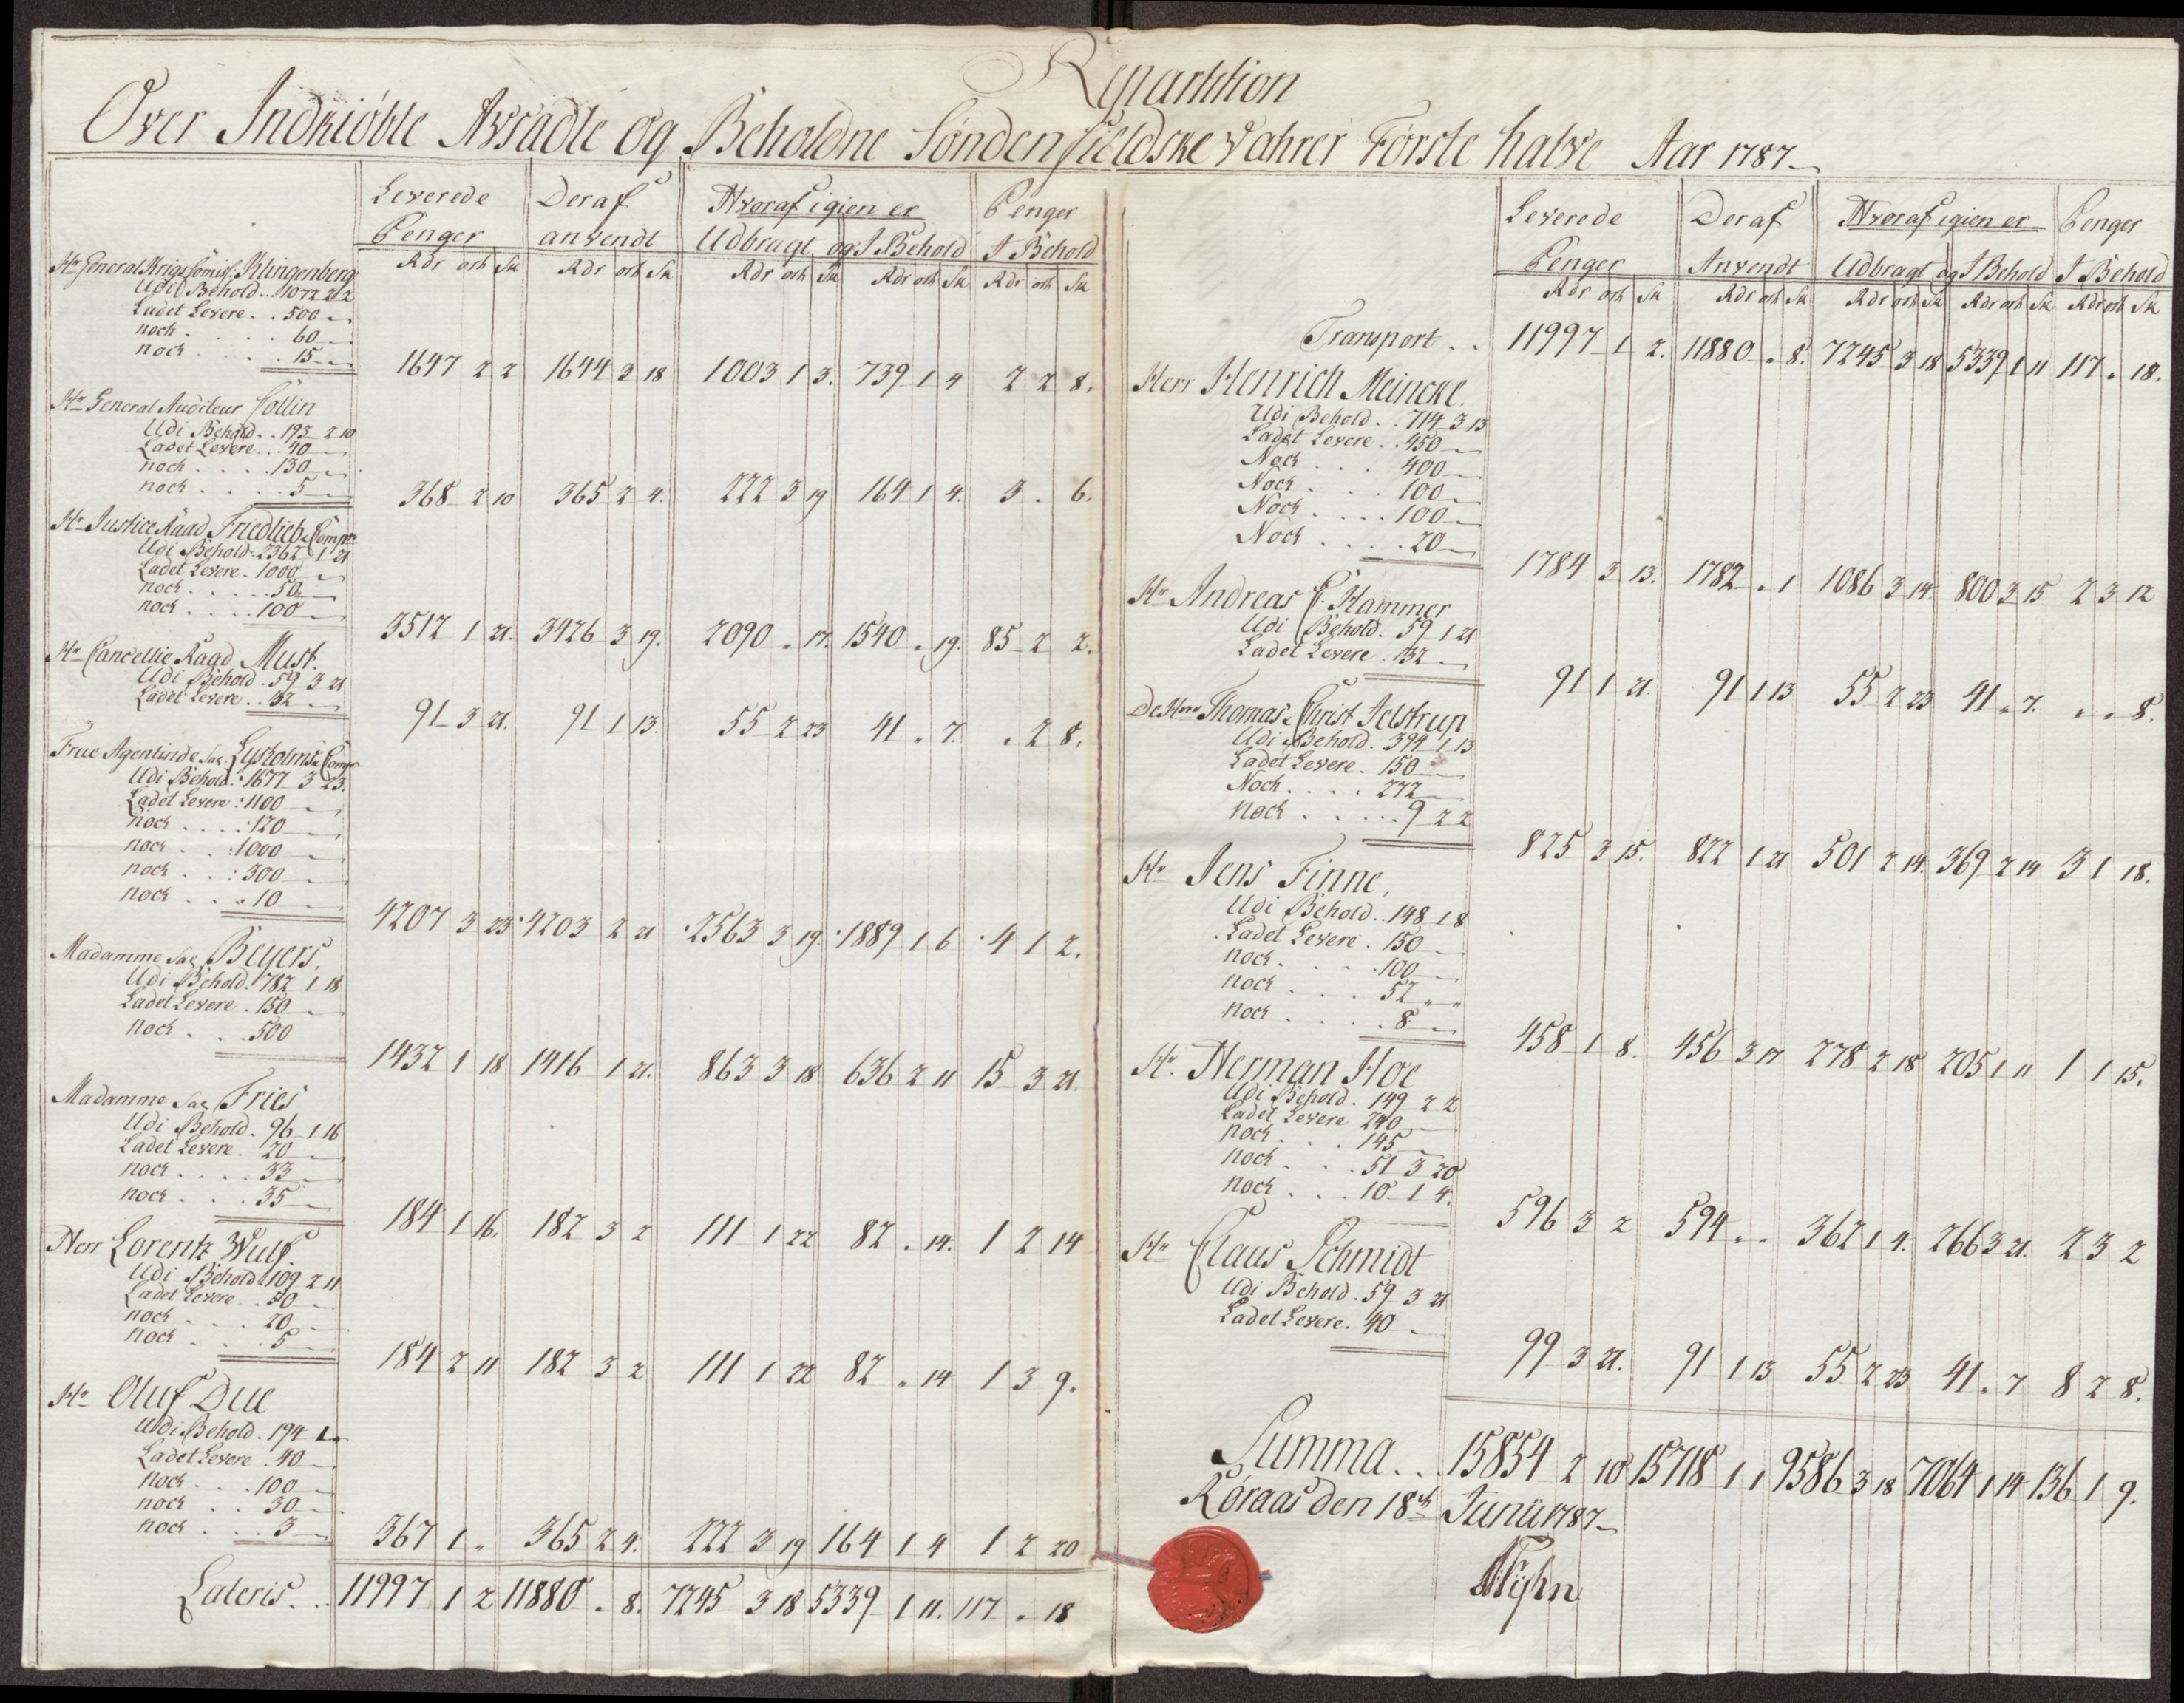 Repartition
Over Indkiöbte Avsadte og Beholdne Söndenfieldske Vahrer Förste halve Aar 1787
Leverede Deraf Hvoraf igien er Penger
Penger anvendt Udbragt og I Behold I Behold
Rdr ort Sk Rdr ort Sk Rdr ort Sk Rdr ort Sk Rdr ort Sk
Hr General Krigs Comiss. Klingenberg
Udi Behold . . 1072 2 2
Ladet Levere . . 500
noch . . . . 60
noch . . . . 15
1647 2 2 1644 3 18 1003 1 3. 739 1 4 2 2 8.
Hr General Auditeur Collin
Udi Behold . . 193 2 10
Ladet Levere . . . 40
noch . . . . 130
noch . . . . 5
368 2 10 365 2 4. 222 3 19 164 1 4. 3 . 6.
Hr Justice Raad Friedlieb & Comp
Udi Behold . 2362 1 21
Ladet Levere . 1000
noch . . . . 50
noch . . . . 100
3512 1 21. 3426 3 19. 2090 . 17. 1540 . 19. 85 2 2.
Hr Cancellie Raad Must.
Udi Behold . 59 3 21
Ladet Levere . . 32
91 3 21. 91 1 13. 55 2 23 41 . 7. . 2 8.
Frue Agentinde Sal. Lysholms & Comp
Udi Behold . 1677 3 23.
Ladet Levere : 1100
noch . . . . 120
noch . . : 1000
noch . . : 300
noch . . . 10
4207 3 23 4203 2 21 2563 3 19 1889 1 6 4 1 2.
Madamme Sal. Beyers,
Udi Behold . 782 1 18
Ladet Levere . 150
noch . . . 500
1432 1 18 1416 1 21. 863 3 18 636 2 11 15 3 21.
Madamme Sal. Fries
Udi Behold . 96 1 16
Ladet Levere . 20
noch . . . . 33
noch . . . 35
184 1 16. 182 3 2 111 1 22 82 . 14. 1 2 14
Herr Lorentz Wulf.
Udi Behold 109 2 11
Ladet Levere . . 50
noch . . . . 20
noch . . . . 5
184 2 11 182 3 2 111 1 22 82 . 14 1 3 9.
Hr Oluf Due
Udi Behold . 194 1
Ladet Levere . 40
noch . . . 100
noch . . 30
noch . . . 3
367 1 . 365 2 4. 222 3 19 164 1 4 1 2 20
Lateris . . 11997 1 2 11880 . 8. 7245 3 18 5339 1 11. 117 . 18
Leverede Deraf Hvoraf igien er Penger
Penger Anvendt Udbragt og I Behold I Behold
Rdr ort Sk Rdr ort Sk Rdr ort Sk Rdr ort Sk Rdr ort Sk
Transport . . 11997 1 2. 11880 . 8. 7245 3 18 5339 1 11 117 . 18.
Herr Henrich Meincke.
Udi Behold . . 714 3 13
Ladet Levere . . 450
Noch . . . 400
Noch . . . 100
Noch . . . . 100
Noch . . . . 20
1784 3 13. 1782 . 1 1086 3 14. 800 3 15 2 3 12
Hr Andreas C. Hammer
Udi Behold . 59 1 21
Ladet Levere . 32
91 1 21. 91 1 13 55 2 23 41 . 7. . . 8.
De Herr Thomas & Christ Jelstrup
Udi Behold . 394 1 13
Ladet Levere . 150
Noch . . . . 272
noch . . . . . 9 2 2
825 3 15. 822 1 21 501 2 14. 369 2 14 3 1 18.
Hr Jens Finne,
Udi Behold . . 148 1 8
Ladet Levere . 150
noch . . . . 100
noch . . . 52
noch . . . . 8
458 1 8. 456 3 17 278 2 18 205 1 11 1 1 15.
Hr. Herman Hoe
Udi Behold . 149 2 2
Ladet Levere 240
noch . . . 145
noch . . . 51 3 20
noch . . . 10 1 4.
596 3 2 594 . . 362 1 4. 266 3 21. 2 3 2
Hr Claus Schmidt
Udi Behold . 59 3 21
Ladet Levere . 40
99 3 21. 91 1 13 55 2 23 41 . 7 8 2 8.
Summa . . 15854 2 10 15718 1 1 9586 3 18 7064 1 14 136 1 9.
Röraas den 18de Junii 1787